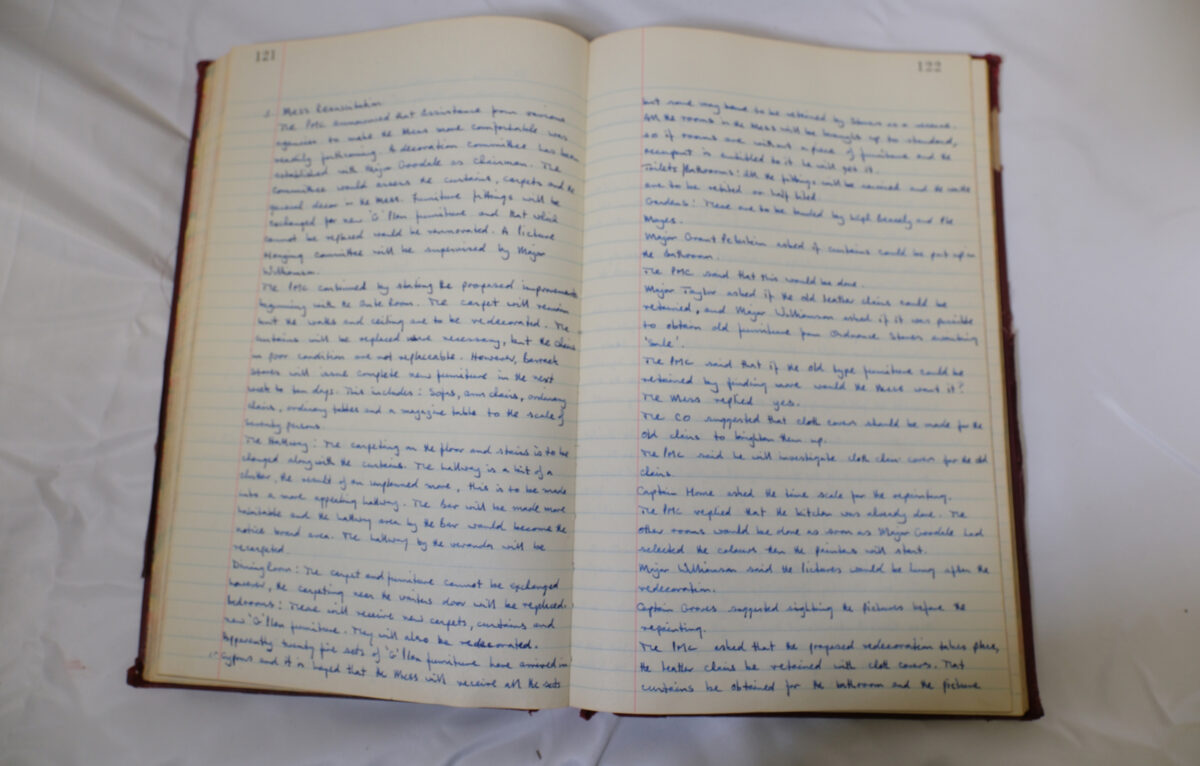 121
Mess
The PMC announced that assistance from various
agencies to make the Mess more comfortable was
readily forthcoming. A decoration committee has been
established with Major Goodale as chairman. The
Committee would assess the curtains, carpets and the
general decor in the Mess. Furniture fittings will be
exchanged for new 'G' Plan furniture and that which
cannot be replaced would be rennovated. A Picture
Hanging committee will be supervised by Major
Williamson.
The PMC continued by stating the proposed improvements
beginning with the Ante Room. The carpet will remain
but the walls and ceiling are to be redecorated. The
curtains will be replaced where necessary, but the chairs
in poor condition are not replaceable. However, Barrack
Stores will issue complete new furniture in the next
week to ten days. This includes: Sofas, arm chairs, ordinary
chairs, ordinary tables and a magazine table to the scale of
seventy persons.
The Hallway: The carpeting on the floor and stairs is to be
changed along with the curtains. The hallway is a bit of a
clutter, the result of an unplanned move, this is to be made
into a more appealing hallway. The Bar will be made more
habitable and the hallway area by the Bar would become the
notice board area. The hallway by the veranda will be
recarpeted.
Dining Room: The carpet and furniture cannot be exchanged
however, the carpeting near the waiters door will be replaced.
Bedrooms: These will receive new carpets, curtains and
new 'G' Plan furniture. They will also be redecorated.
Apparently twenty five sets of 'G' Plan furniture have arrived in
Cyprus and it is hoped that the Mess will receive all the sets
122
but some may have to be retained by Stores as a reserve.
All the rooms in the Mess will be brought up to standard,
so if rooms are without a piece of furniture and the
occupant is entitled to it he will get it.
Toilets/Bathrooms: All the fittings will be and the walls
are to be retiled or half tiled.
Gardens: These are to be tended by and the
Major Grant Peterkin asked if curtains could be put up in
the bathroom.
The PMC said that this would be done.
Major Taylor asked if the old leather chairs could be
retained, and Major Williamson asked if it was possible
to obtain old furniture from Ordnance Stores awaiting
'sale'.
The PMC said that if the old type furniture could be
retained by finding more would the Mess want it?
The Mess replied yes.
The CO suggested that cloth covers should be made for the
old chairs to brighten them up.
The PMC said he will investigate cloth chair covers for the old
chairs.
Captain Horne asked the time scale for the repainting.
The PMC replied that the kitchen was already done. The
other rooms would be done as soon as Major Goodale had
selected the colours then the painters will start.
Major Williamson said the Pictures would be hung after the
redecoration.
Captain Groves suggested sighting the pictures before the
repainting.
The PMC asked that the proposed redecoration takes place,
the leather chairs be retained with cloth covers. That
curtains be obtained for the bathroom and the picture